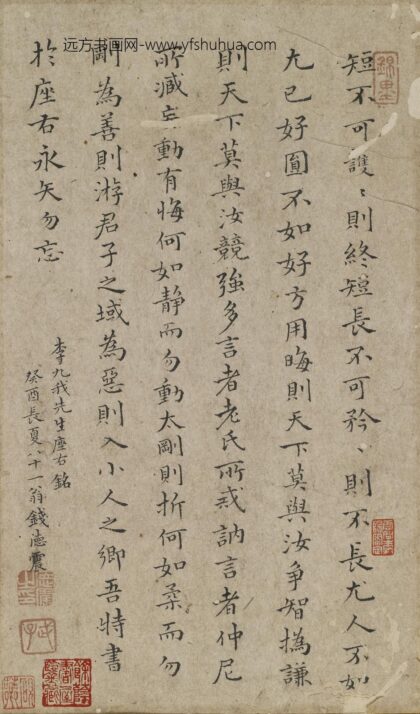 远方书画网-www.yfshuhua.com
短不可護〻則終短長不可矜〻則不長尤人不如
尤已好圓不如好方用晦則天下莫與汝爭智撝謙
則天下莫與汝競強多言者老氏所戒訥言者仲尼
所臧妄動有悔何如静而勿動太剛則折何如柔而勿
剛為善則游君子之域為惡則入小人之鄉吾特書
於座右永矢勿忘
李九我先生座右銘
癸酉長夏八十一翁錢德震